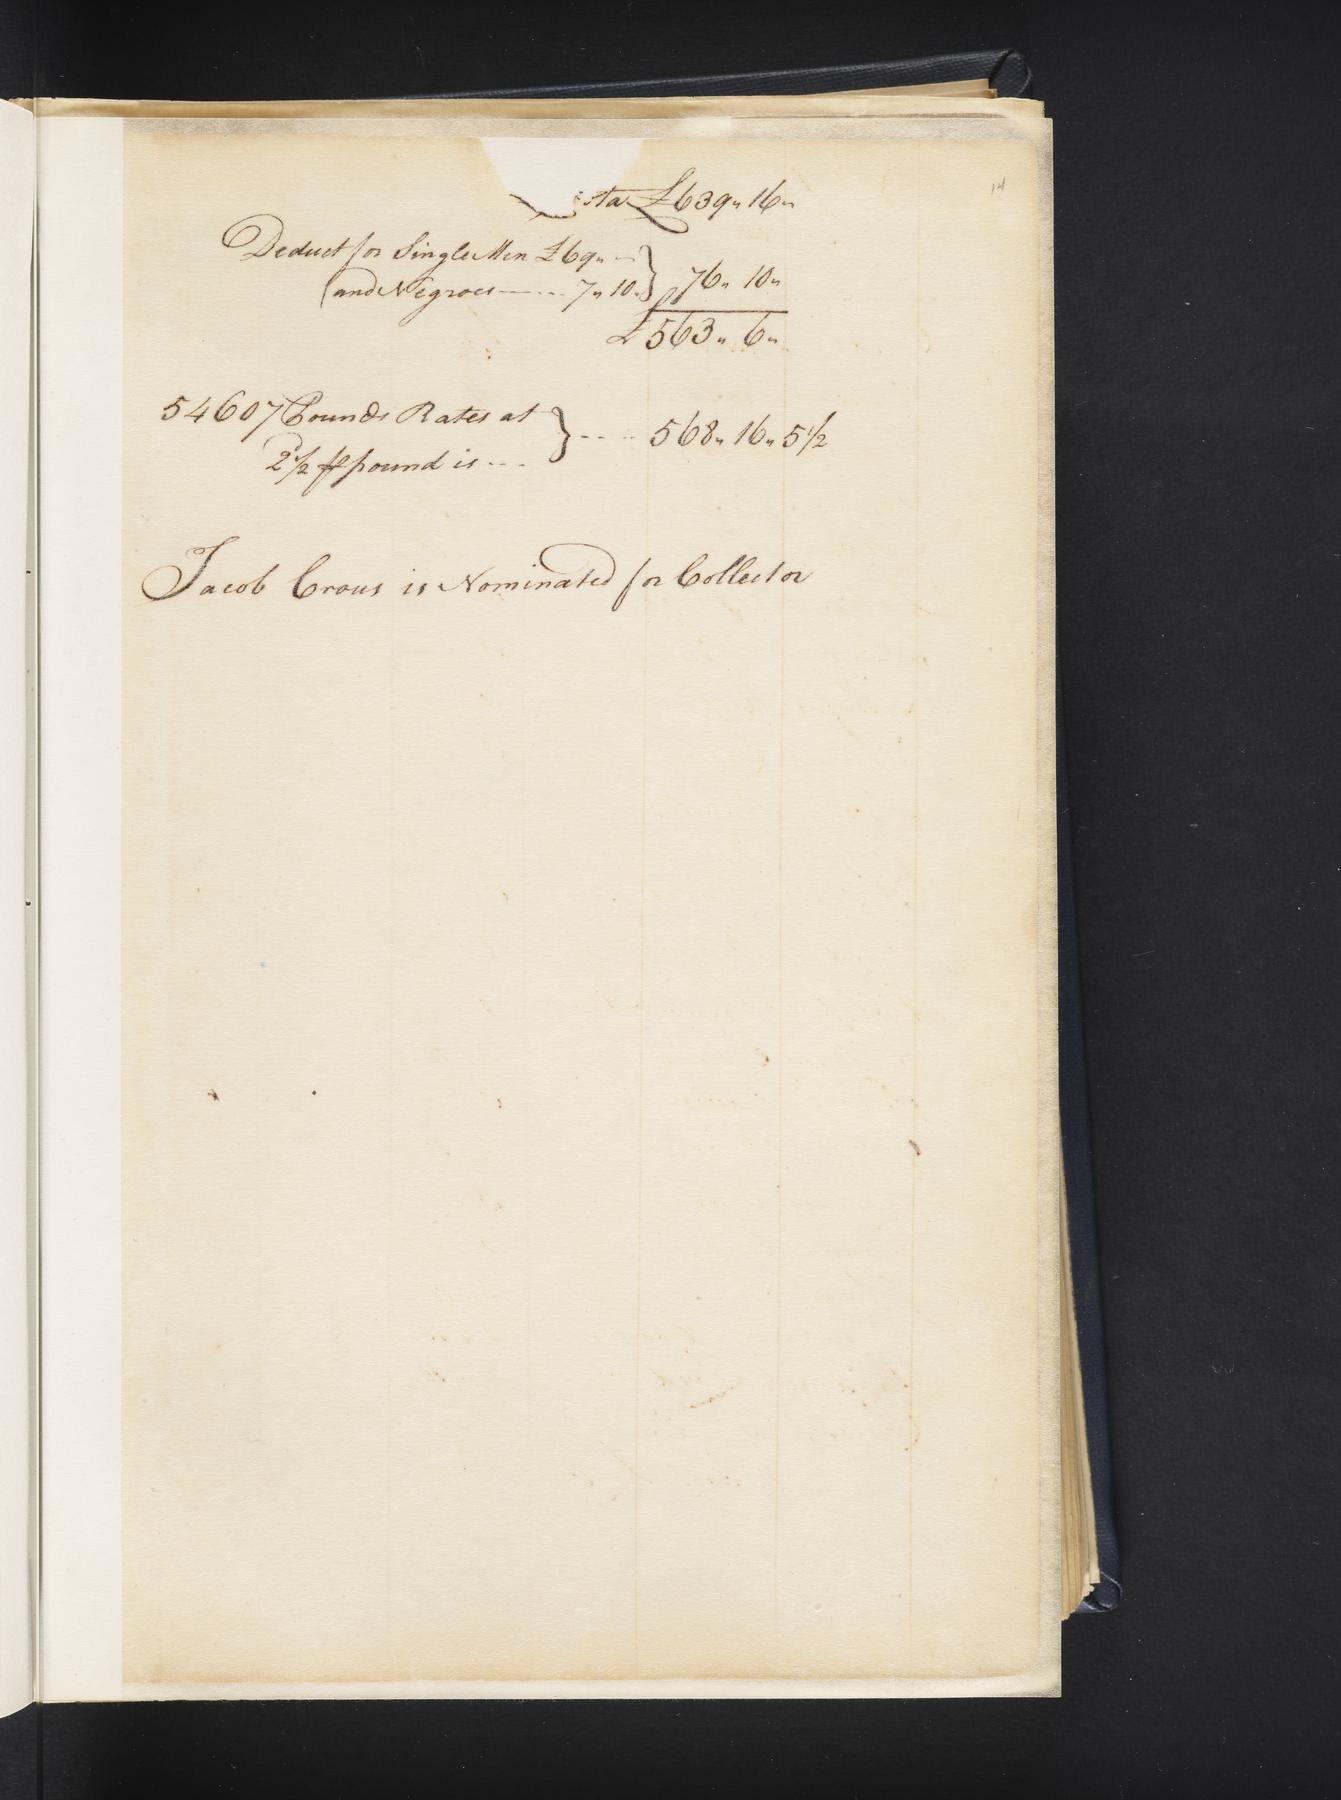 14
£639〃16〃
Deduct for Single Men £69〃 --
and Negroes ---- 7〃10〃 } 76〃 10〃
£563〃 6〃
54607 Pounds Rates at } ---- 568〃16〃5½
2½ ⅌ pound is ---
Jacob Crous is Nominated for Collector